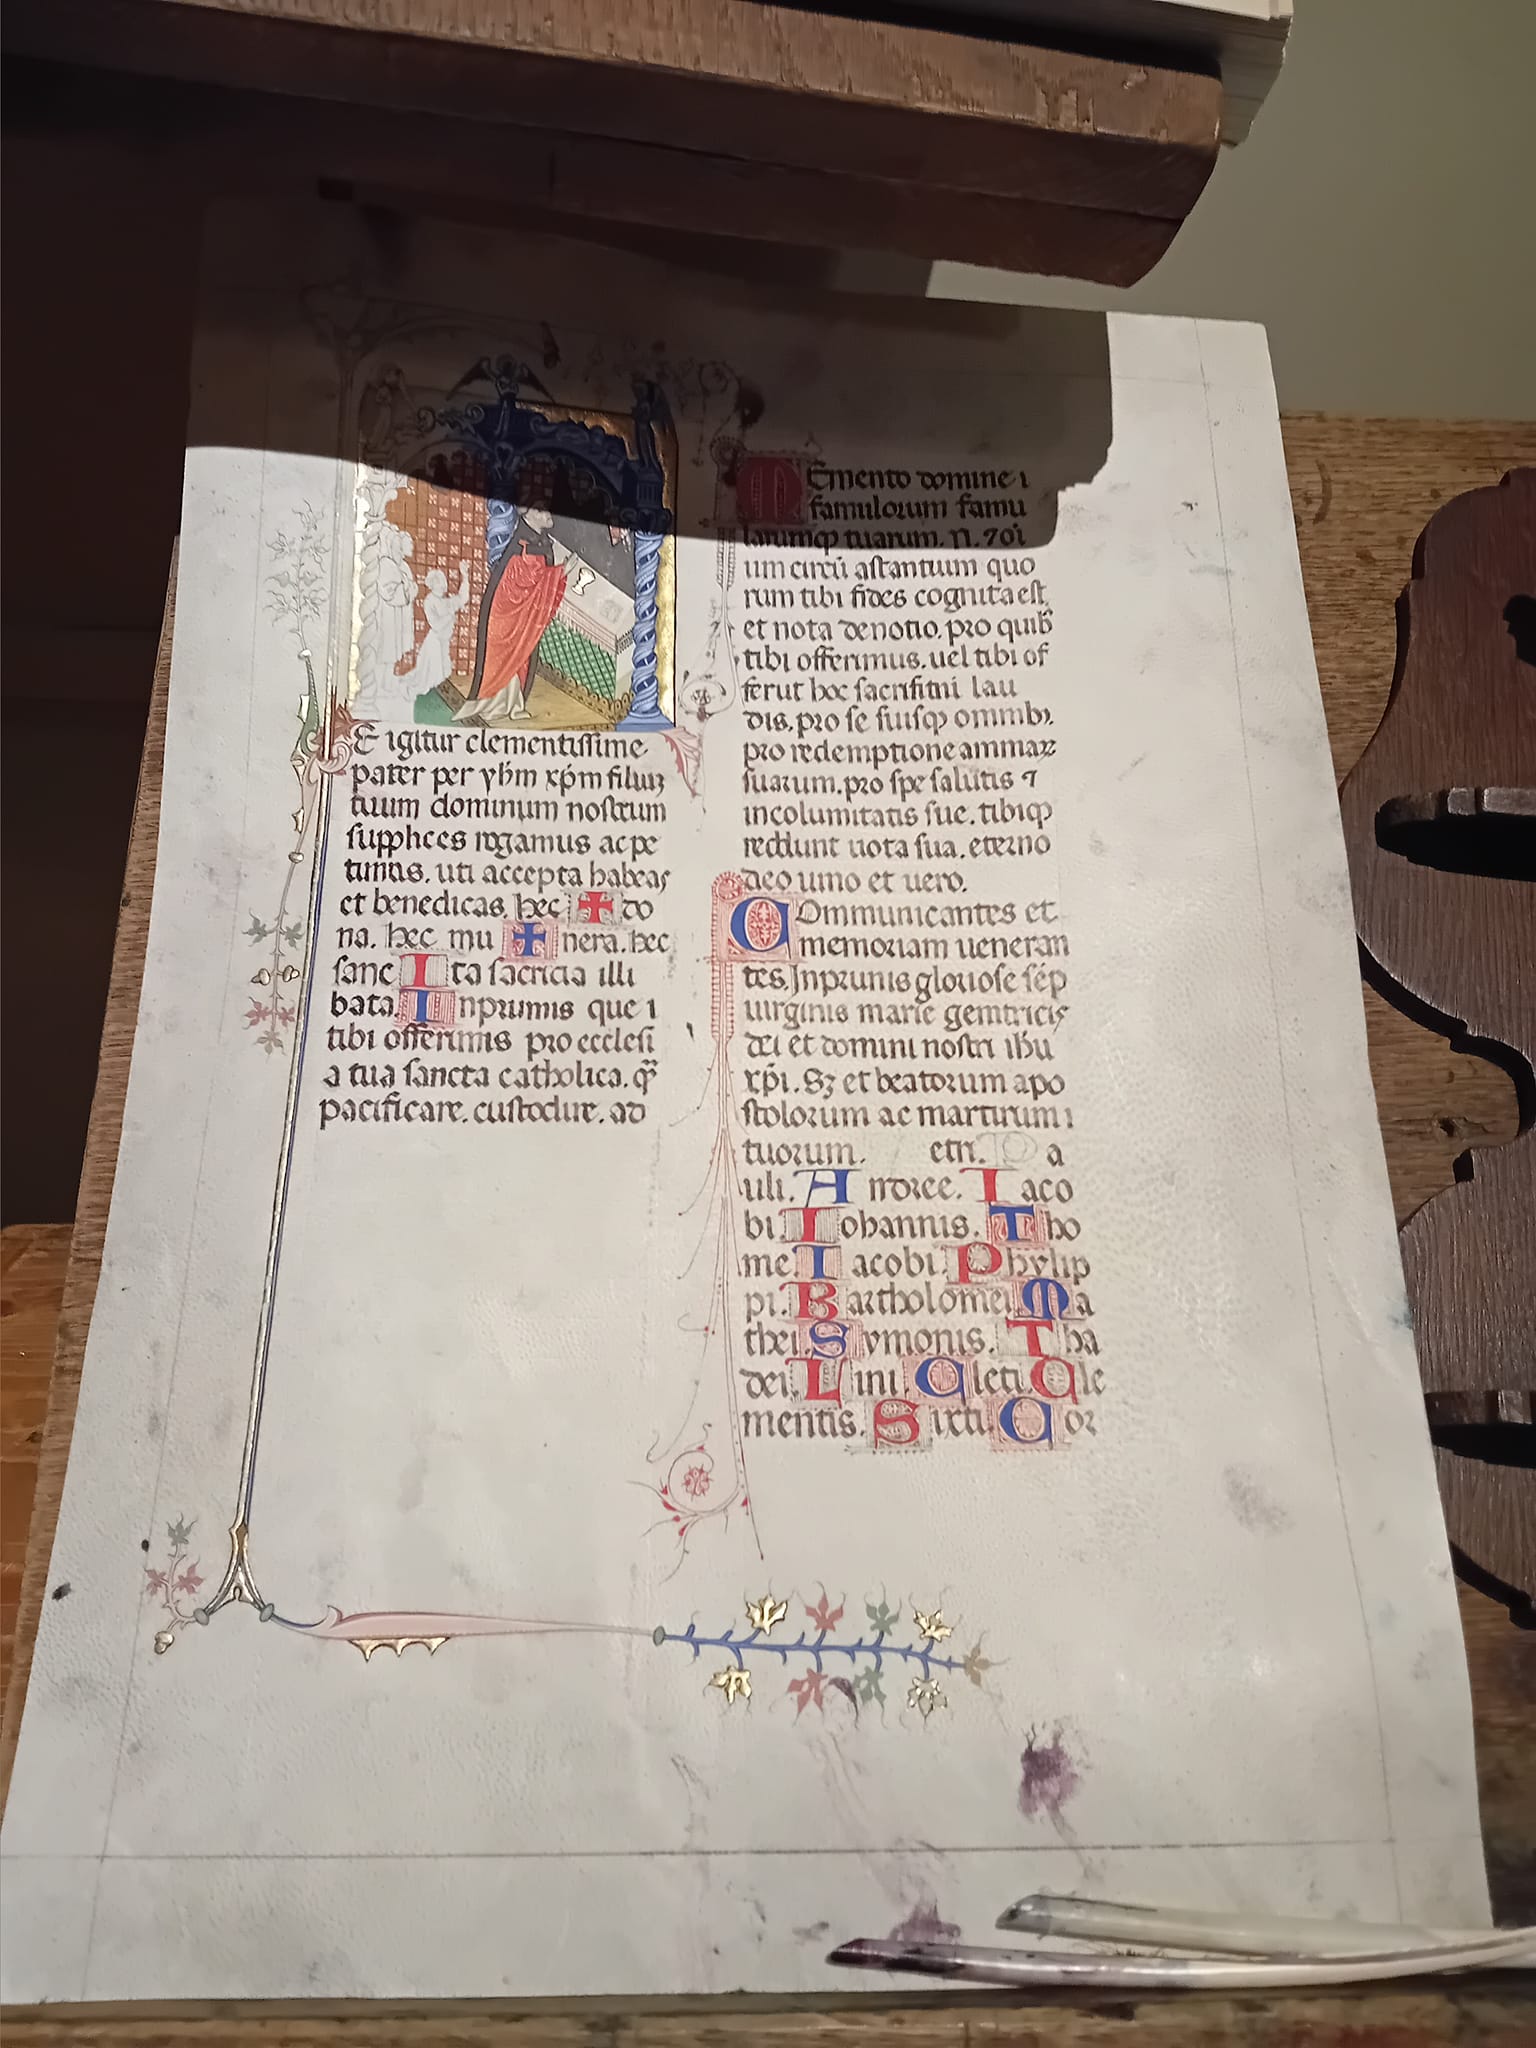 E igitur clementissime
pater per yhm xpm filiuz
tuum dominum nostrum
supplices rogamus ac pe
timus. uti accepta habeas
et benedicas. hec ✚ do
na. hec mu ✚ nera. hec
sanc I ta sacricia illi
bata. Inprimis que i
tibi offerimus pro ecclesi
a tua sancta catholica. q
pacificare. custodire. ad
Memento domine i
famulorum famu
larumq tuarum. N. 7 oi
um circu astantium quo
rum tibi fides cognita est
et nota denotio. pro quib
tibi offerimus. uel tibi of
ferut hoc sacrifitii lau
dis. pro se suisq omnibz.
pro redemptione ammaz
suarum. pro spe salutis 7
incolumitatis sue. tibiq
reddunt uota sua. eterno
deo uino et uero.
Communicantes et
memoriam ueneran
tes. Inprimis gloriose sep
uirginis marie genitricis
dei et domini nostri ihu
xpi. Sz et beatorum apo
stolorum ac martirum i
tuorum. etri. P a
uli. Andree. Iaco
bi. Iohannis. Tho
me. Iacobi. Phylip
pi. Bartholomei Ma
thei. Symonis. Tha
dei. Lini. Cleti. Cle
mentis. Sixti. Cor